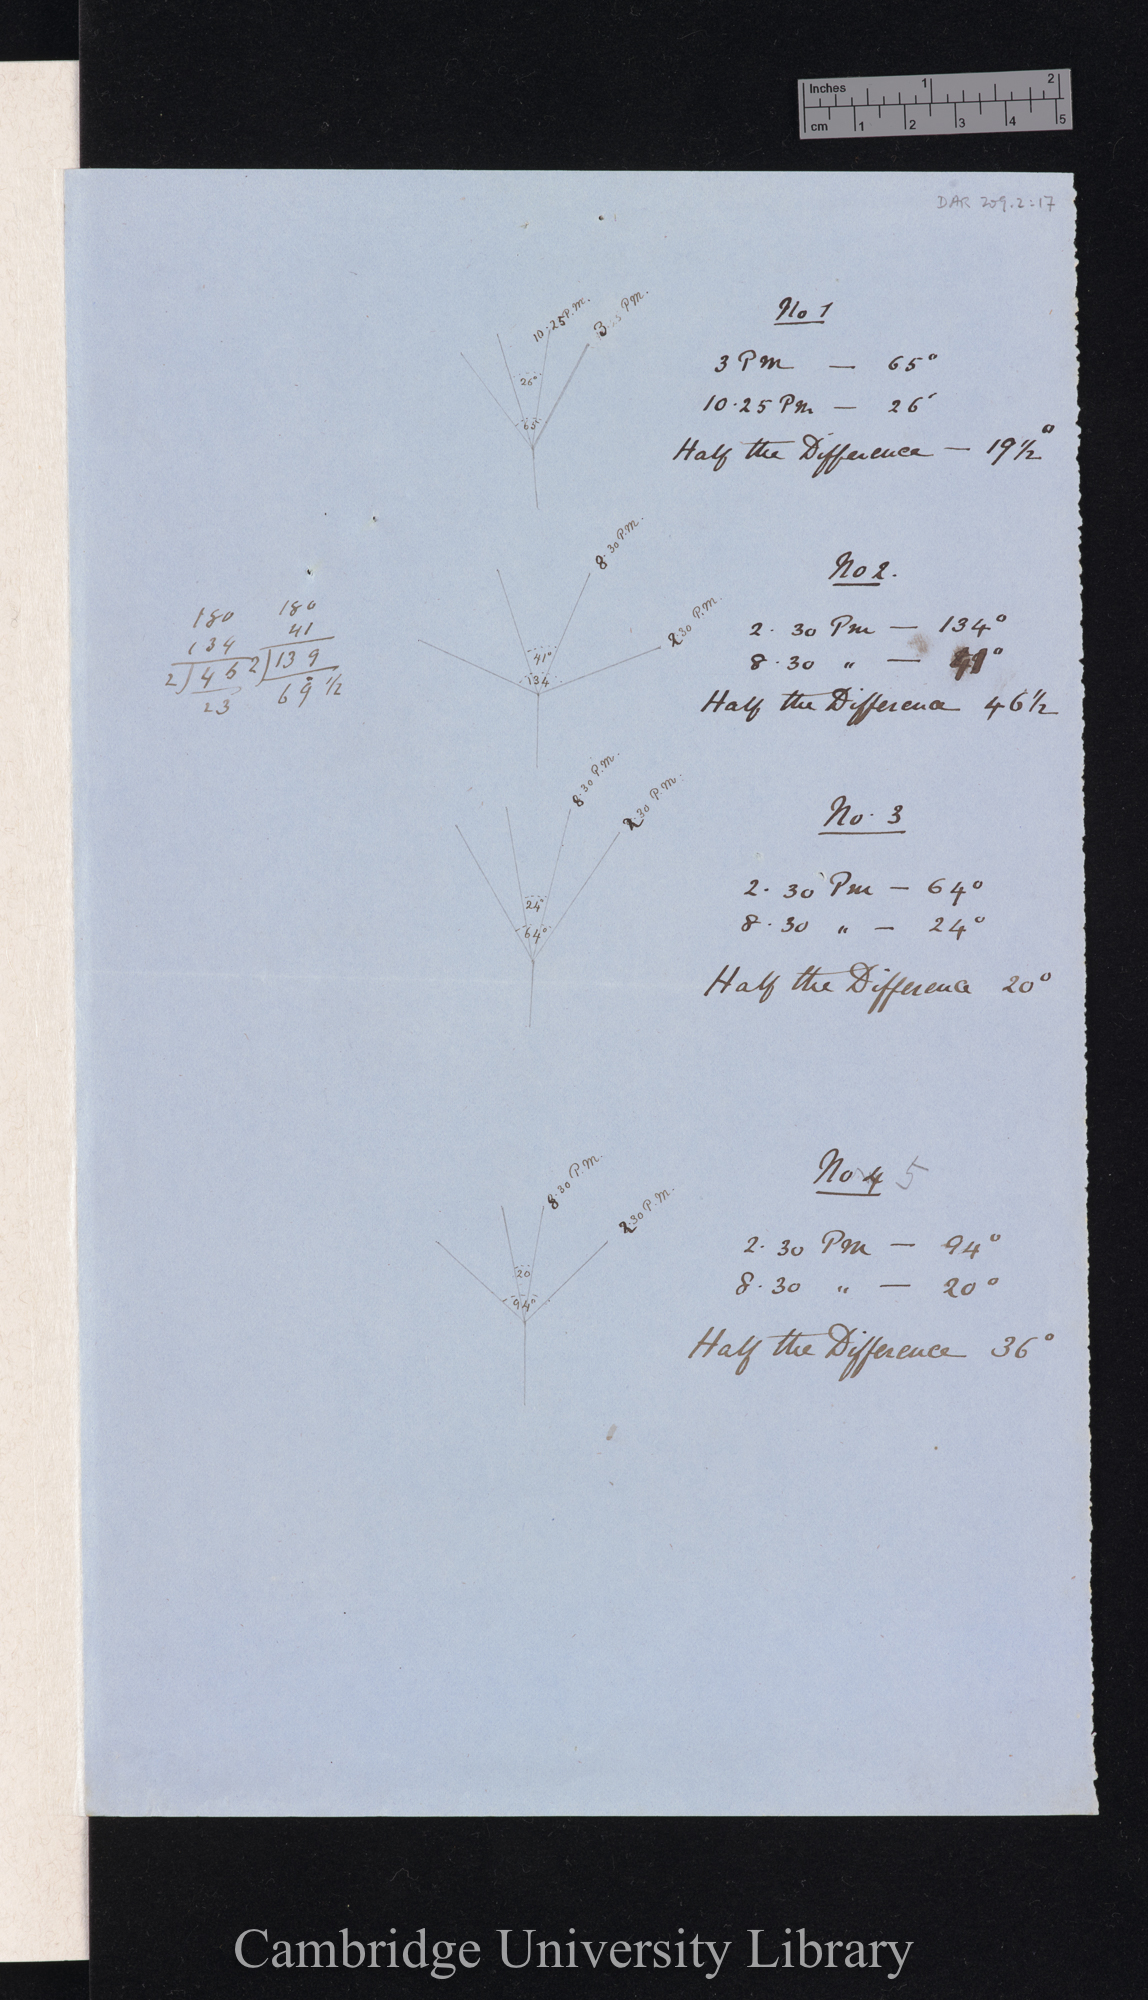 Inches 1 2
cm 1 2 3 4 5
DAR 209.2:17
10.25 P.M. 3 P.M.
26°
65°
No 1
3 PM — 65°
10.25 PM — 26°
Half the Difference — 19½°
8.30 P.M.
2.30 P.M.
41°
134
180 180
134 41
2)46 2)139
23 69½
No 2.
2.30 PM — 134°
8.30 " — 41°
Half the Difference 46½
8.30 P.M.
2.30 P.M.
24°
64°
No. 3
2.30 PM — 64°
8.30 " — 24°
Half the Difference 20°
8.30 P.M.
2.30 P.M.
20
94°
No 4 5
2.30 PM — 94°
8.30 " — 20°
Half the Difference 36°
Cambridge University Library